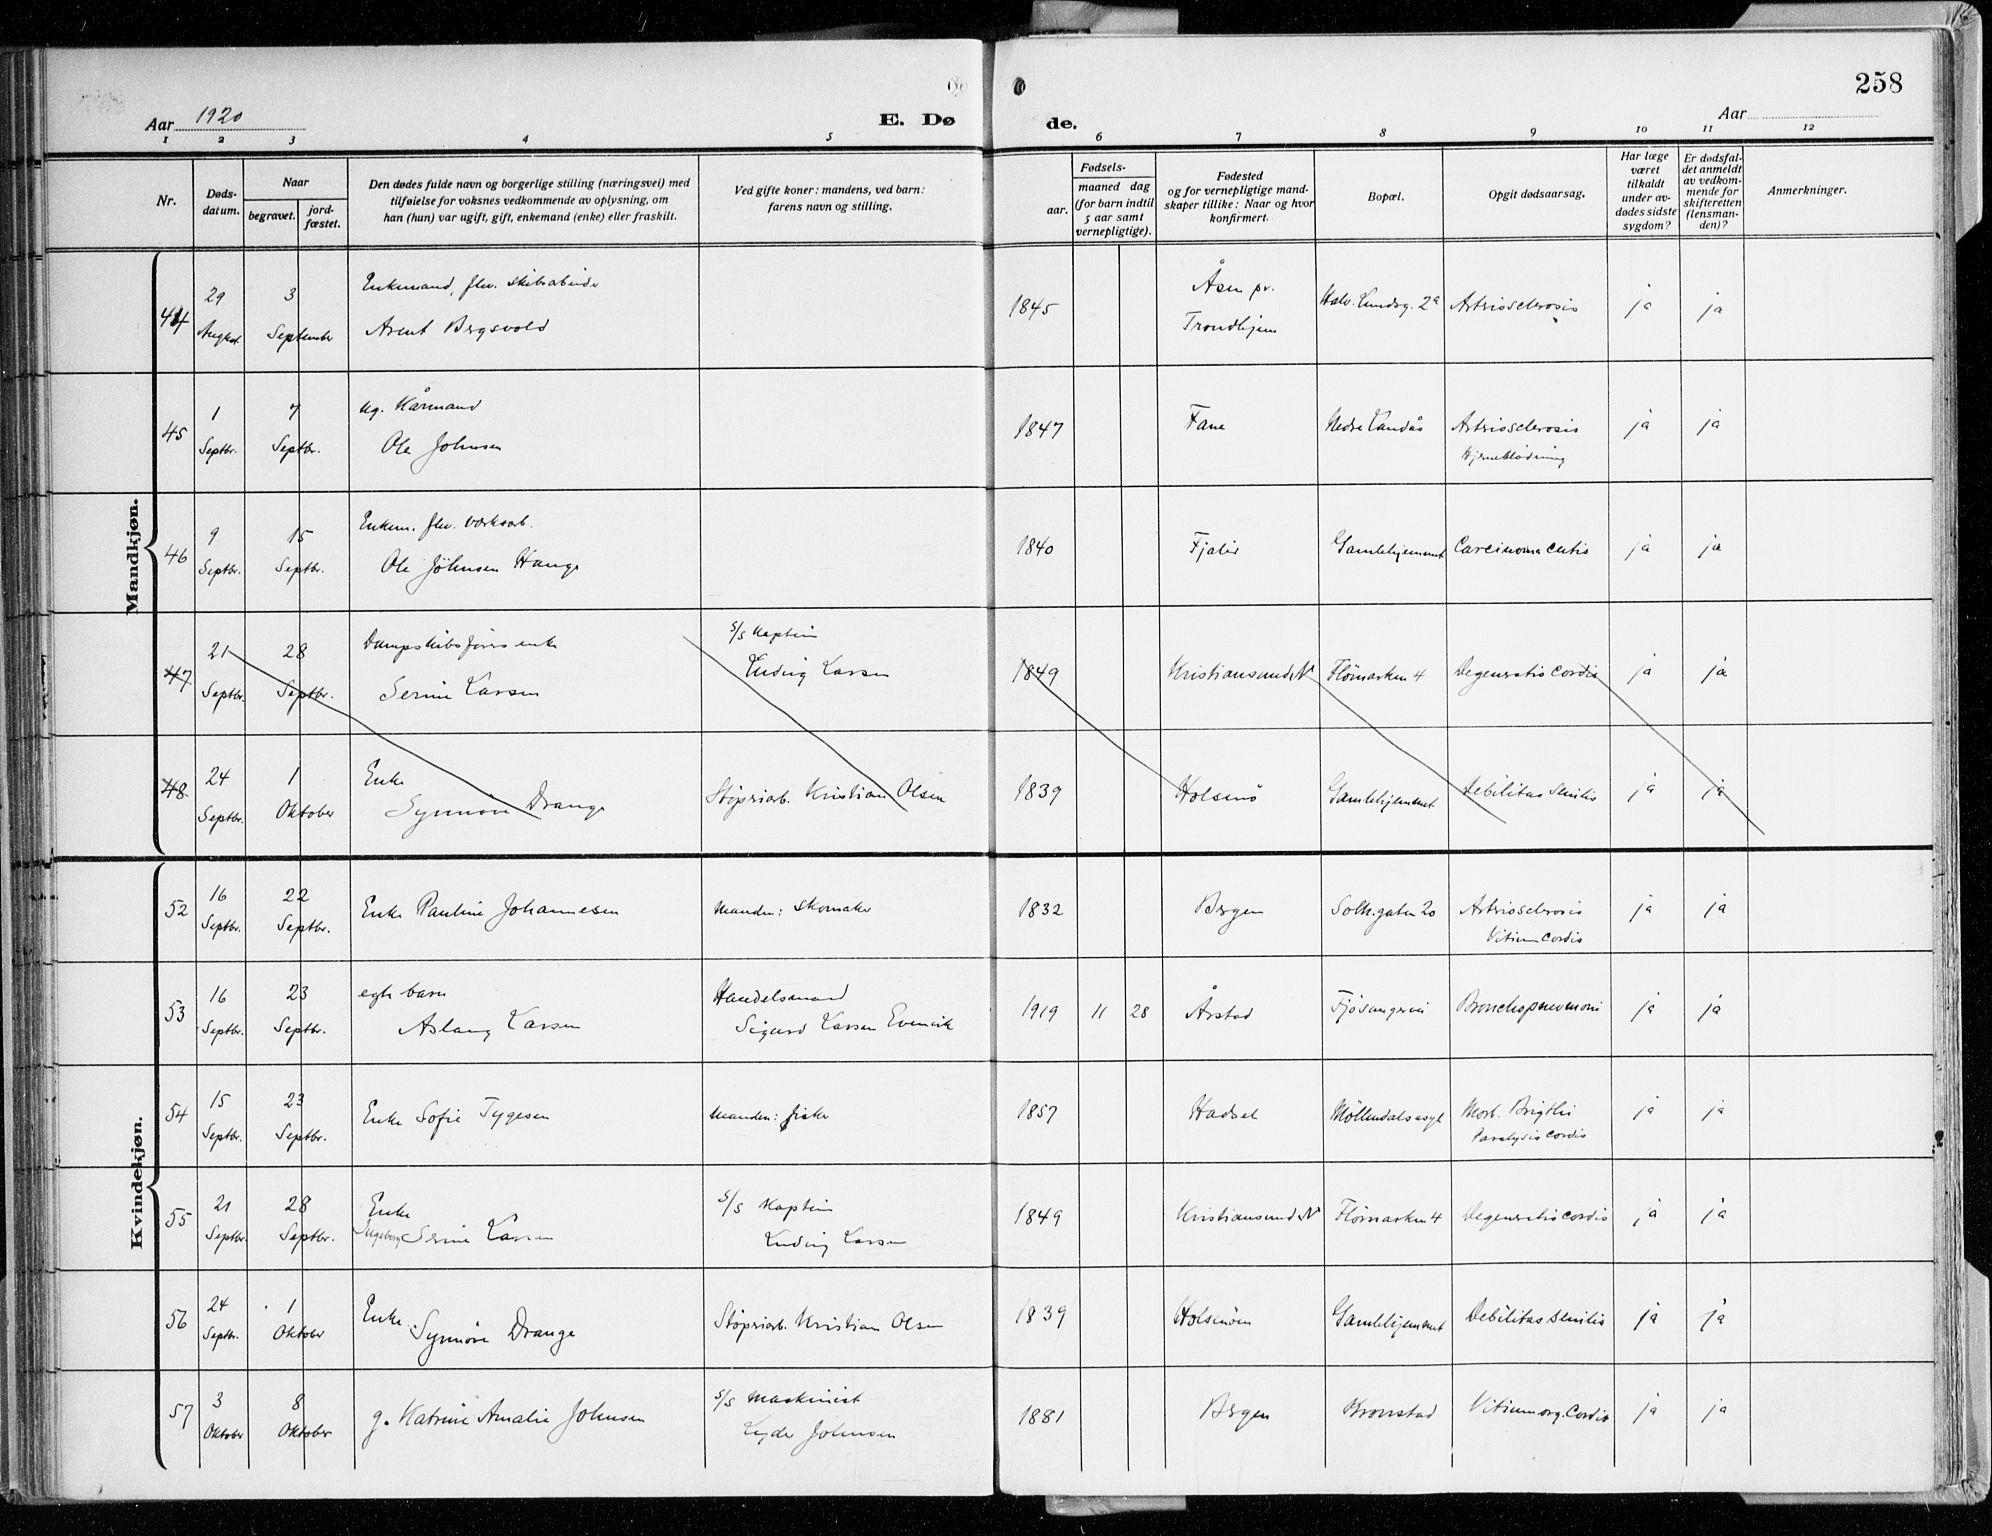 258
Aar 1920
E. Dø
de.
Aar
1 2 3 4 5 6 7 8 9 10 11 12
Nr.
Døds-
datum.
Naar
begravet.
jord-
fæstet.
Den dødes fulde navn og borgerlige stilling (næringsvei) med
tilføielse for voksnes vedkommende av oplysning, om
han (hun) var ugift, gift, enkemand (enke) eller fraskilt.
Ved gifte koner: mandens, ved barn:
farens navn og stilling.
Fødsels-
aar.
maaned dag
(for barn indtil
5 aar samt
vernepligtige).
Fødested
og for vernepligtige mand-
skaper tillike: Naar og hvor
konfirmert.
Bopæl.
Opgit dødsaarsag.
Har læge
været
tilkaldt
under av-
dødes sidste
sygdom?
Er dødsfal-
det anmeldt
av vedkom-
mende for
skifteretten
(lensman-
den)?
Anmerkninger.
Mandkjøn.
44 29 August 3 September
Enkemand, flv. skibsarbeider
Arent Bergsvold
1845 Åsen pr. Trondhjem Halv. Lundsg. 2a Artriosclerosis ja ja
45 1 Septbr. 7 Septbr.
ug. Kårmand
Ole Johnsen
1847 Fane Nedre Landås Artriosclerosis
Hjerneblødning ja ja
46 9 Septbr. 15 Septbr.
Enkem. flv. værksarb.
Ole Johnsen Hauge
1840 Fjaler Gamlehjemmet Carcinoma cutis ja ja
47 21 Septbr. 28 Septbr.
Dampskibsførerenke
Serine Larsen
s/s Kaptein
Ludvig Larsen
1849 Kristiansund N Flømarken 4 Degeneratio cordis ja ja
48. 24 Septbr. 1 Oktober
Enke
Synnøve Drange
Støperiarb. Kristian Olsen
1839 Holsenø Gamlehjemmet Debilitas senilis ja ja
Kvindekjøn.
52 16 Septbr. 22 Septbr.
Enke Pauline Johannesen
Manden: skomaker
1832 Bergen Solh.gaten 20 Artriosclerosis
Vitium cordis ja ja
53 16 Septbr. 23 Septbr.
egte barn
Aslaug Larsen
Handelsmand
Sigurd Larsen Evenvik
1919 11 28 Årstad Fjøsangervei Bronchopneumoni ja ja
54 15 Septbr. 23 Septbr.
Enke Sofie Tygesen
Manden: fisker
1857 Hadsel Möllendalsasyl Morb. Brigthii
Paralysis cordis ja ja
55 21 Septbr. 28 Septbr.
Enke
Ingeborg Serine Larsen
s/s Kaptein
Ludvig Larsen
1849 Kristiansund N Flømarken 4 Degeneratio cordis ja ja
56 24 Septbr. 1 Oktober
Enke
Synnøve Drange
Støperiarb. Kristian Olsen
1839 Holsenøen Gamlehjemmet Debilitas senilis ja ja
57 3 Oktober 8 Oktober
g. Katrine Amalie Johnsen
s/s Maskinist
Lyder Johnsen
1881 Bergen Kronstad Vitium org. cordis ja ja